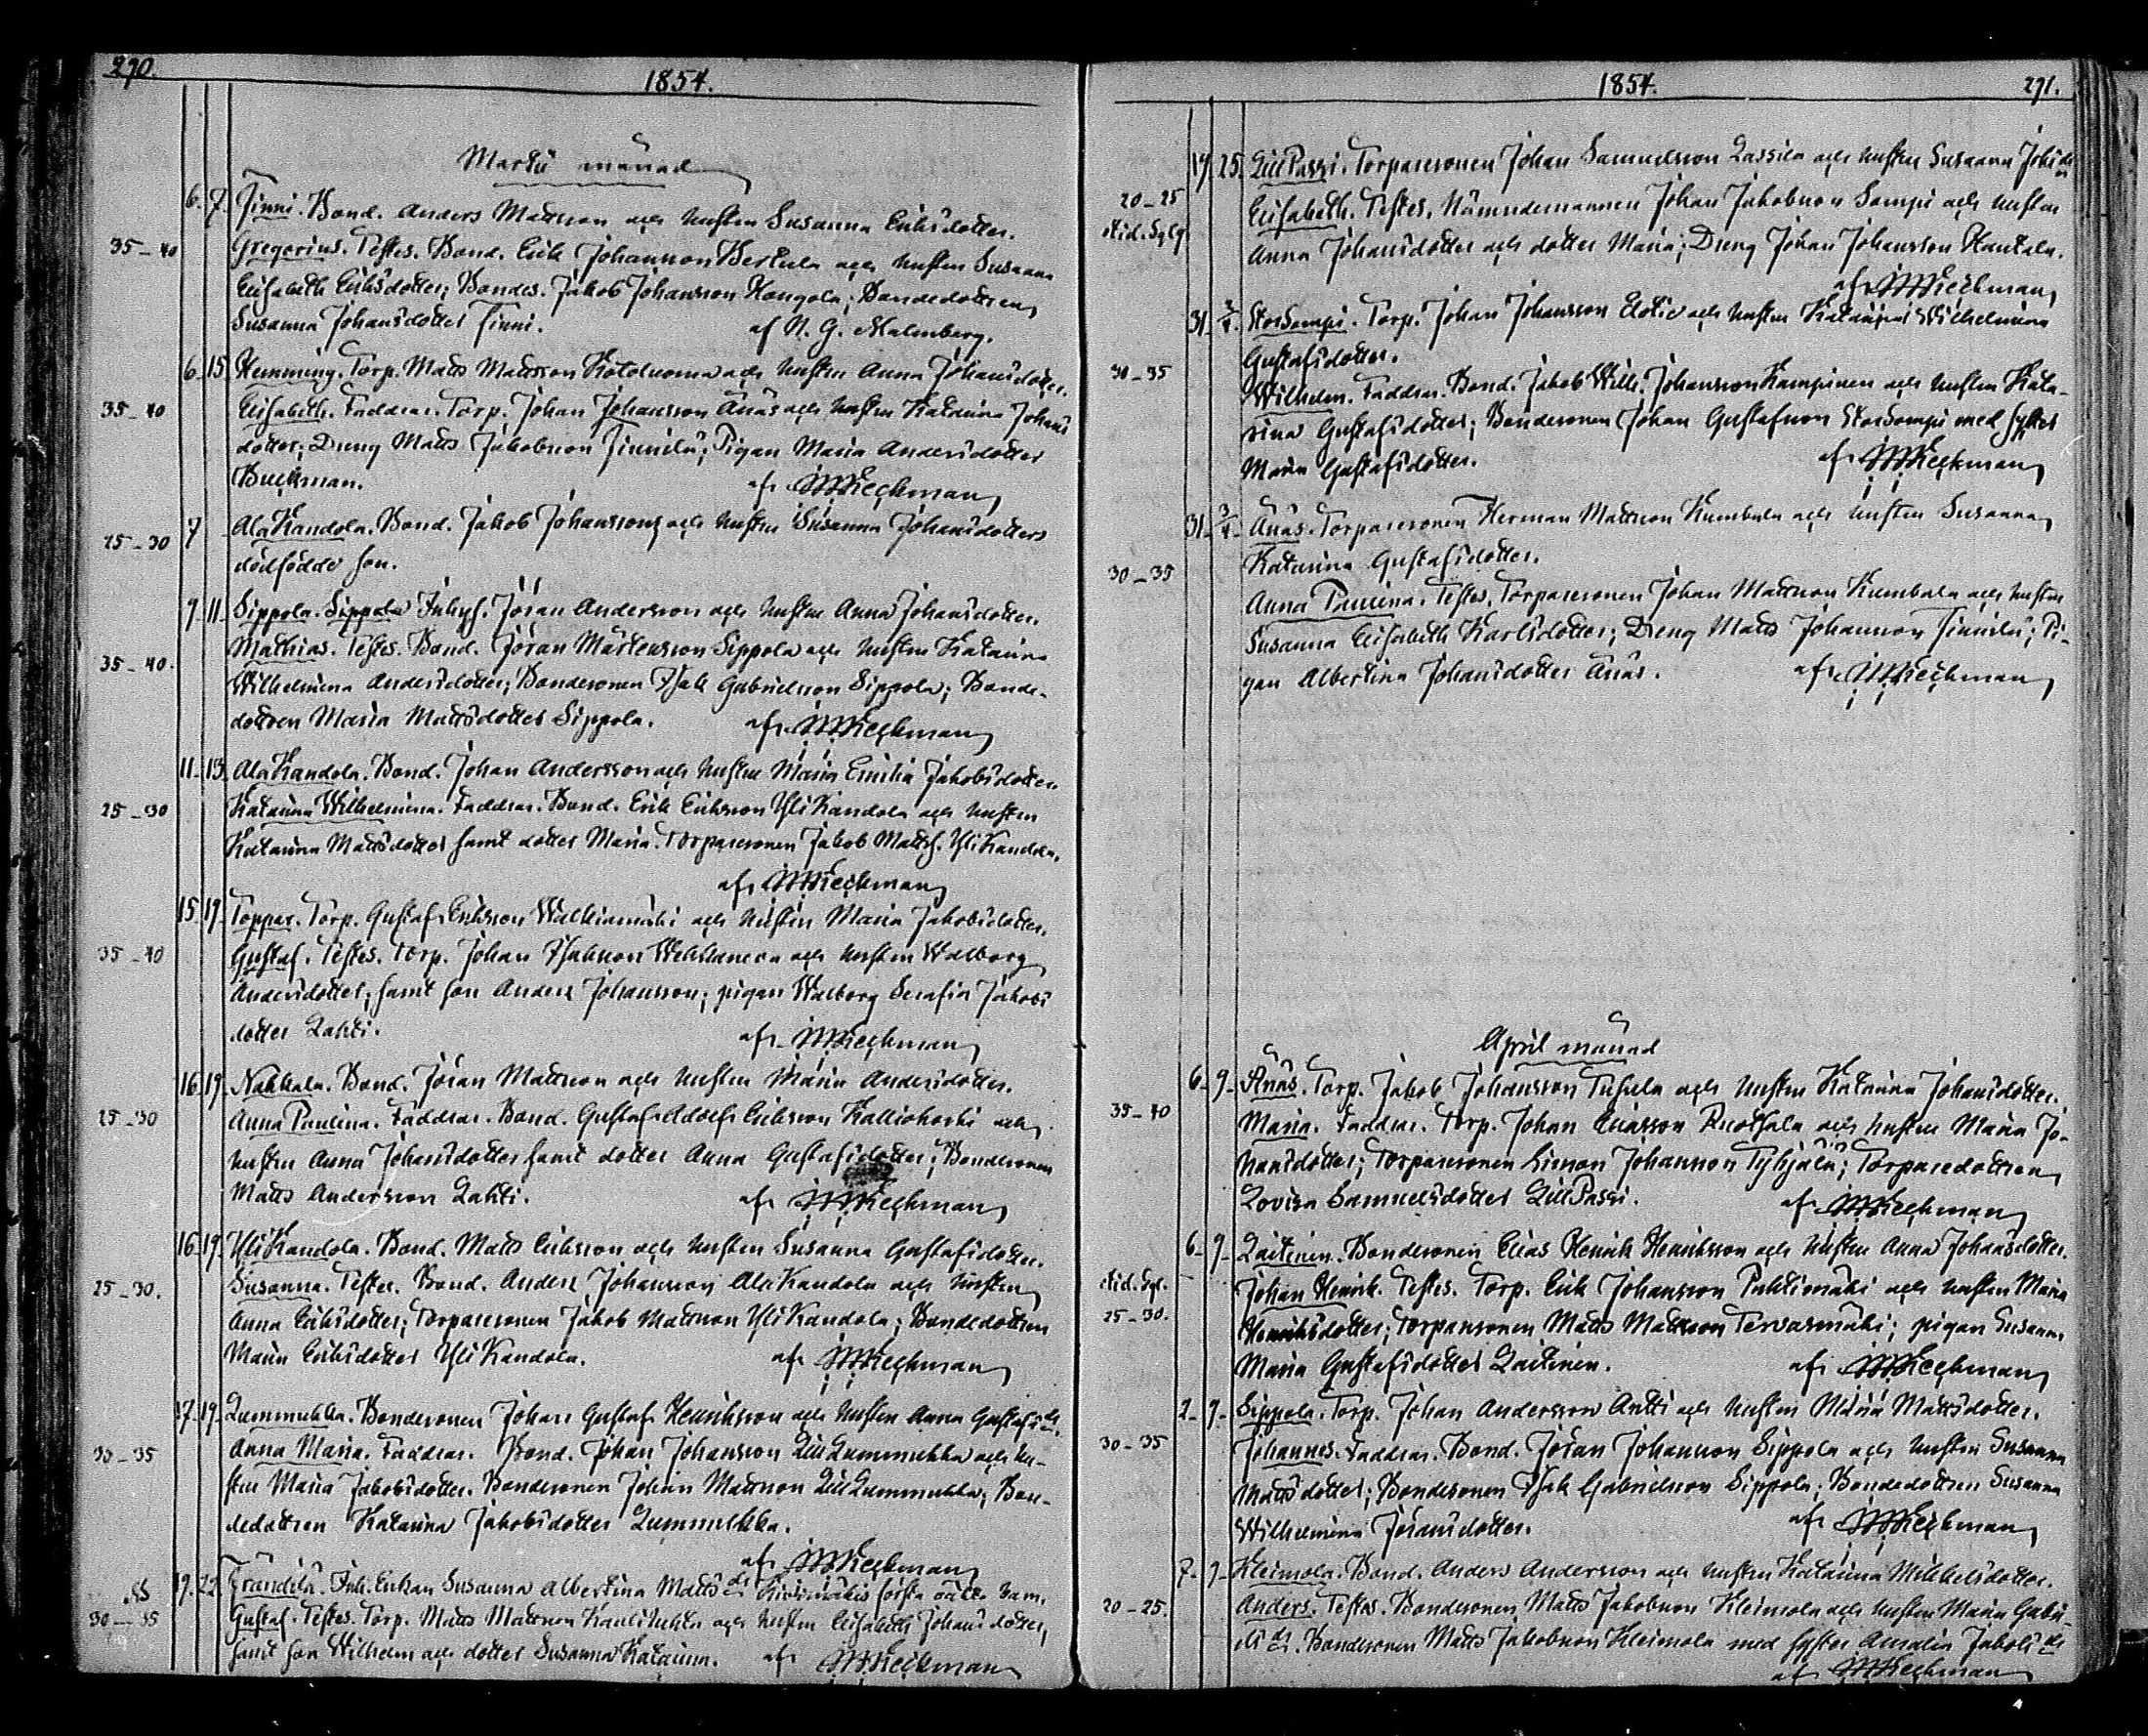 290.
1854.
Martii månad
6. 7. Finni. Bond. Anders Mattsson och hustru Susanna Eriksdotter.
35-40 Gregorius. Testes. Bond. Erik Johansson Bertula och hustru Susanna
Elisabeth Eriksdotter; Bondes. Jakob Johansson Hongola; Bondedottren
Susanna Johansdotter Finni. af N. G. Malmberg.
6. 15. Hemming. Torp. Matts Mattsson Kotoluoma och hustru Anna Johansdotter.
35-40 Elisabeth. Faddrar. Torp. Johan Johansson Änäs och hustru Katarina Johans
dotter; Dreng Matts Jakobsson Finnilä; Pigan Maria Andersdotter
Buckman. af
7 AlaKandola. Bond. Jakob Johanssons och hustru Susanna Johansdotters
25-30 dödfödde son.
9. 11. Sippola. Sippola Inhys. Jöran Andersson och hustru Anna Johansdotter.
35-40. Mathias. Testes. Bond. Jöran Mårtensson Sippola och hustru Katarina
Wilhelmina Andersdotter; Bondesonen Isak Gabrielsson Sippola; Bonde-
dottren Maria Mattsdotter Sippola. af
11. 13. AlaKandola. Bond. Johan Andersson och hustru Maria Emilia Jakobsdotter.
25-30 Katarina Wilhelmina. Faddrar. Bond. Erik Eriksson YliKandola och hustru
Katarina Mattsdotter samt dotter Maria. Torparesonen Jakob Mattss. YliKandola.
af
15. 19. Toppar. Torp. Gustaf Eriksson Walkiamäki och hustru Maria Jakobsdotter.
35-40 Gustaf. Testes. Torp. Johan Isaksson och hustru Walborg
Andersdotter; samt son Anders Johansson; pigan Walborg Serafia Jakobs
dotter Lahti. af
16. 19. Nahkala. Bond. Jöran Mattsson och hustru Maria Andersdotter.
25-30 Anna Paulina. Faddrar. Bond. Gustaf Adolf Eriksson Kalliokoski och
hustru Anna Johansdotter samt dotter Anna Gustafsdotter; Bondesonen
Matts Andersson Lahti. af
16. 19. YliKandola. Bond. Matts Eriksson och hustru Susanna Gustafsdotter.
25-30. Susanna. Testes. Bond. Anders Johansson AlaKandola och hustru
Anna Eriksdotter; Torparesonen Jakob Mattsson YliKandola; Bondedottren
Maria Eriksdotter YliKandola. af
17. 19. Lummukka. Bondesonen Johan Gustaf Henriksson och hustru Anna Gustafs dr.
30-35 Anna Maria. Faddrar. Bond. Johan Johansson LillLummukka och hu-
stru Maria Jakobsdotter. Bondesonen Johan Mattsson LillLummukka; Bon-
dedottren Katarina Jakobsdotter Lummukka.
af
19. 22. Frändilä. Inh. Enkan Susanna Albertina Matts dr första oäkta barn.
30-35 Gustaf. Testes. Torp. Matts Mattsson och hustru Elisabeth Johansdotter,
samt son Wilhelm och dotter Susanna Katarina. af
1854.
291.
19. 25. LillPassi. Torparesonen Johan Samuelsson Lassila och hustru Susanna Johs dr
20-25 Elisabeth. Testes. Nämndemannen Johan Jakobsson Sompi och hustru
Anna Johansdotter och dotter Maria; Dreng Johan Johansson Hantala.
af
31. 2/4. StorSompi. Torp. Johan Johansson och hustru Katarina Wilhelmina
Gustafsdotter.
30-35 Wilhelm. Faddrar. Bond. Jakob Wilh. Johansson Kampinen och hustru Kata-
rina Gustafsdotter; Bondesonen Johan Gustafsson StorSompi med syster
Maria Gustafsdotter. af
31. 2/4. Änäs. Torparesonen Herman Mattsson Kumbula och hustru Susanna
30-35 Katarina Gustafsdotter.
Anna Paulina. Testes. Torparesonen Johan Mattsson Kumbula och hustru
Susanna Elisabeth Karlsdotter; Dreng Matts Johansson Finnilä; Pi-
gan Albertina Johansdotter Änäs. af
April månad
6. 9. Änäs. Torp. Jakob Johansson och hustru Katarina Johansdotter.
35-40 Maria. Faddrar. Torp. Johan Eriksson och hustru Maria Jo-
hansdotter; Torparesonen Simon Johansson; Torparedottren
Lovisa Samuelsdotter LillPassi. af
6. 9. Laitinen. Bondesonen Elias Henrik Henriksson och hustru Anna Johansdotter.
Johan Henrik. Testes. Torp. Erik Johansson Puhtimäki och hustru Maria
25-30. Henriksdotter; Torparesonen Matts Mattsson Tervasmäki; pigan Susanna
Maria Gustafsdotter Laitinen. af
2. 9. Sippola. Torp. Johan Andersson Antti och hustru Maria Mattsdotter.
30-35 Johannes. Faddrar. Bond. Jöran Johansson Sippola och hustru Susanna
Mattsdotter; Bondesonen Isak Gabrielsson Sippola; Bondedottren Susanna
Wilhelmina Jöransdotter. af
7. 9. Kleimola. Bond. Anders Andersson och hustru Katarina Mikkelsdotter.
20-25. Anders. Testes. Bondesonen Matts Jakobsson Kleimola och hustru Maria Gabri-
els dr. Bondesonen Matts Jakobsson Kleimola med syster Amalia Jakobs dr
af